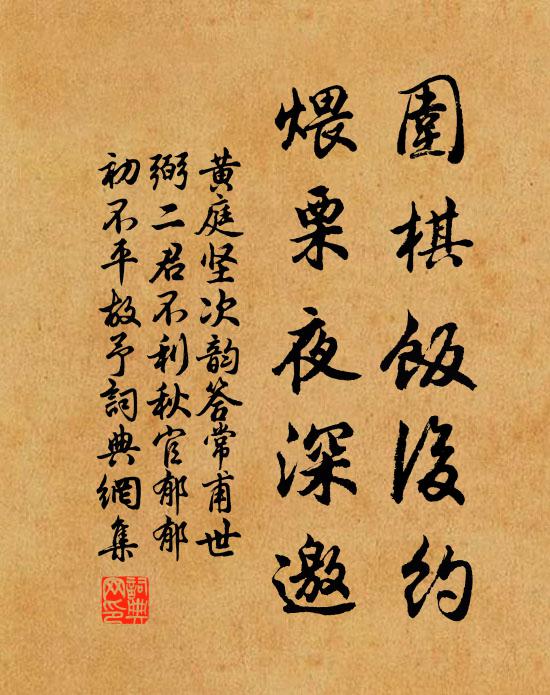 圍棋飯後約
煨栗夜深邀
黄庭坚次韵答常甫世
弼二君不利秋官郁郁
初不平故予詞典網集
詞典
网印